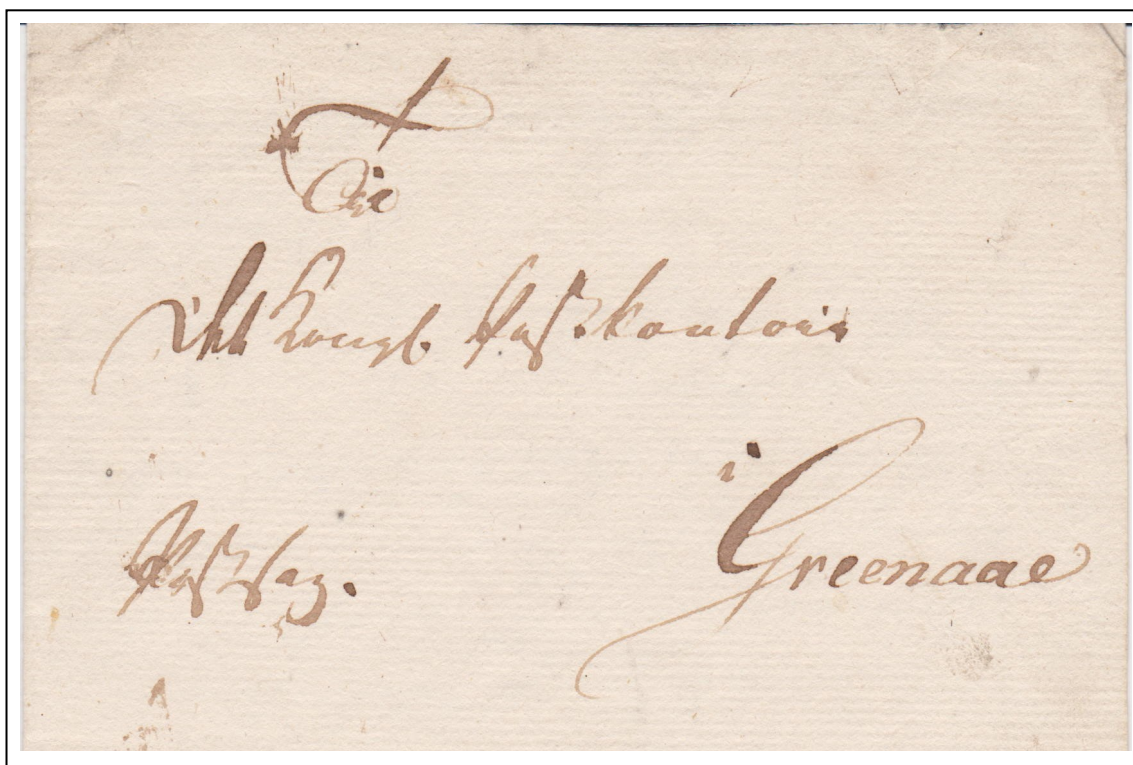 Til
Det Kongl. Postkontoir
i
Greenaae
Postsag.